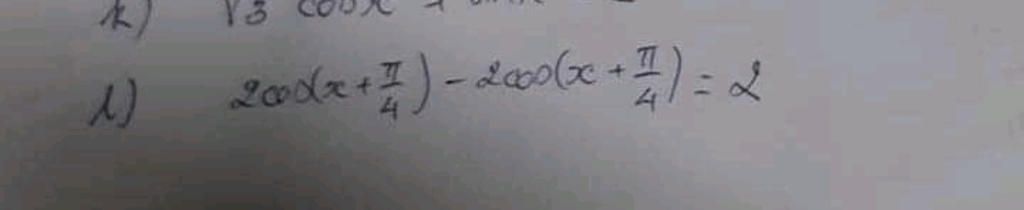 k) √3 cosx + sinx
l) 2cos(x + π/4) - 2cos(x + π/4) = 2